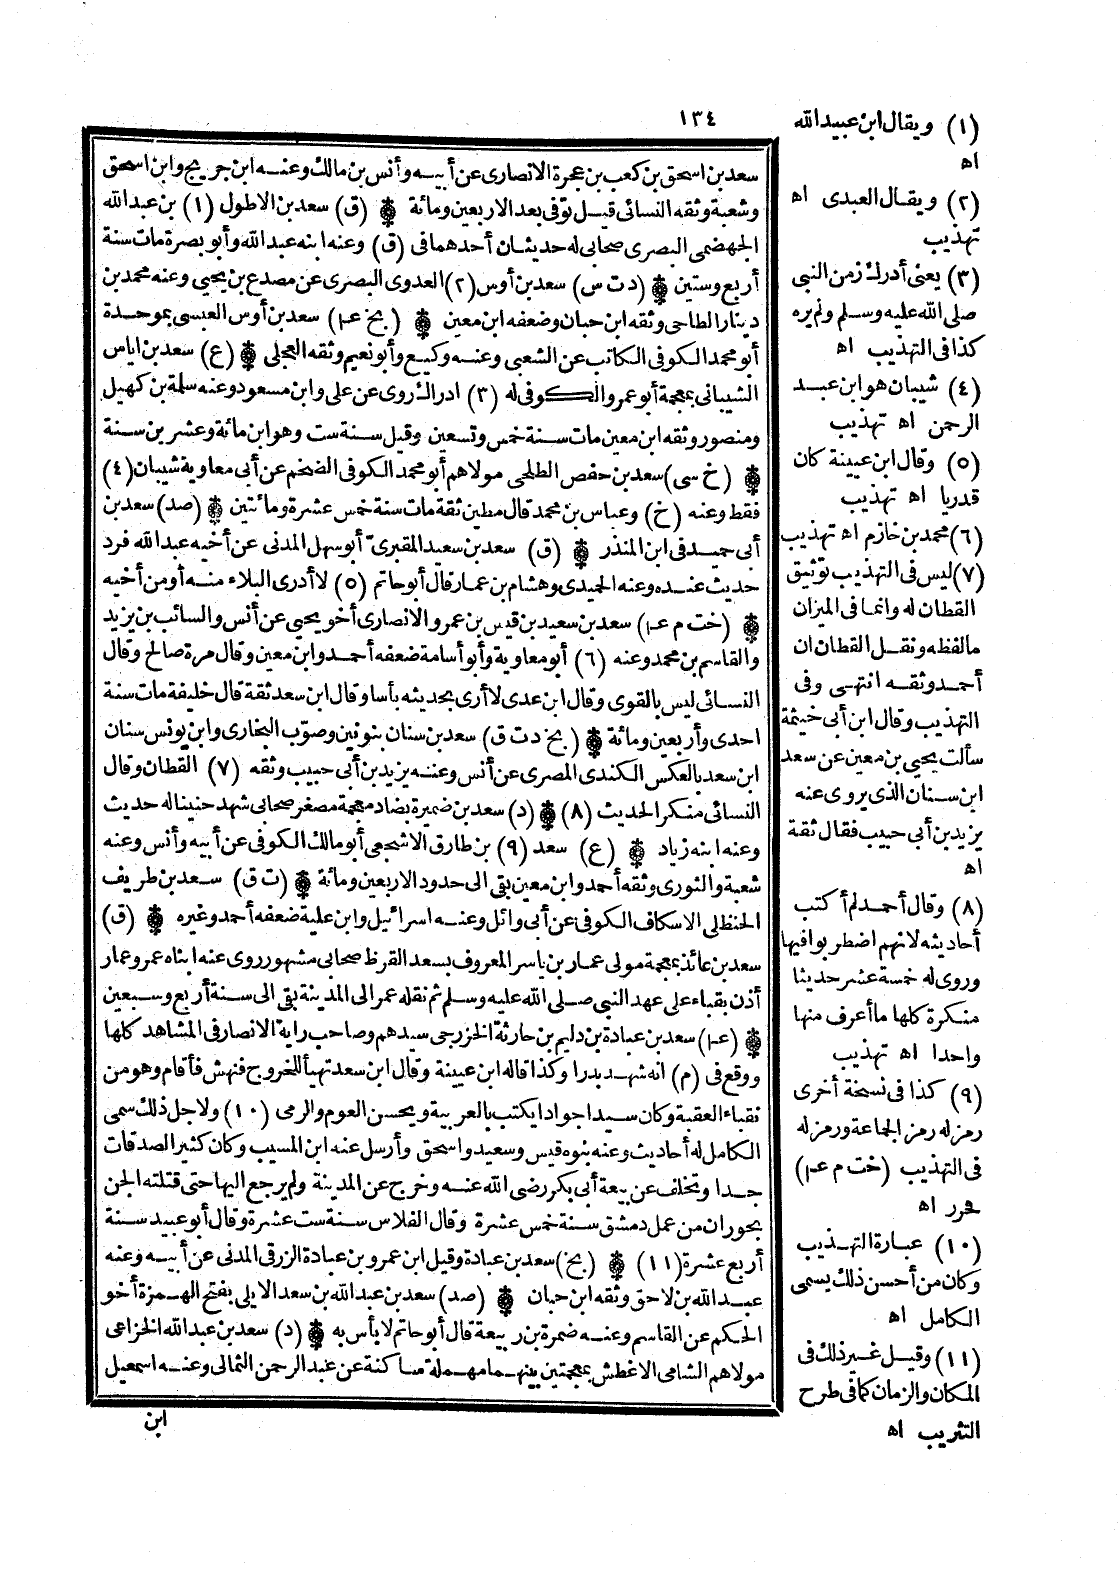 ١٣٤
سعد بن اسحق بن كعب بن عجرة الانصارى عن أبيه وأنس بن مالك وعنه ابن جريج وابن اسحق
وشعبة وثقه النسائى قيل توفى بعد الاربعين ومائة (ق) سعد بن الاطول (١) بن عبد الله
الجهضمى البصرى صحابى له حديثان أحدهما فى (ق) وعنه ابنه عبد الله وأبو بصرة مات سنة
أربع وستين (د ت س) سعد بن أوس (٢) العدوى البصرى عن مصدع بن يحيى وعنه محمد بن
دينار الطاحى وثقه ابن حبان وضعفه ابن معين (بخ عـ١) سعد بن أوس العبسى بموحدة
أبو محمد الكوفى الكاتب عن الشعبى وعنه وكيع وأبو نعيم وثقه العجلى (ع) سعد بن اياس
الشيبانى بمعجمة أبو عمرو الكوفى له (٣) ادراك روى عن على وابن مسعود وعنه سلمة بن كهيل
ومنصور وثقه ابن معين مات سنة خمس وتسعين وقيل سنة ست وهو ابن مائة وعشرين سنة
(خ سى) سعد بن حفص الطلحى مولاهم أبو محمد الكوفى الضخم عن أبى معاوية شيبان (٤)
فقط وعنه (خ) وعباس بن محمد قال مطين ثقة مات سنة خمس عشرة ومائتين (صد) سعد بن
أبى حميد فى ابن المنذر (ق) سعد بن سعيد المقبرى أبو سهل المدنى عن أخيه عبد الله فرد
حديث عنده وعنه الحميدى وهشام بن عمار قال أبو حاتم (٥) لا أدرى البلاء منه أو من أخيه
(خت م عـ١) سعد بن سعيد بن قيس بن عمرو الانصارى أخو يحيى عن أنس والسائب بن يزيد
والقاسم بن محمد وعنه (٦) أبو معاوية وأبو أسامة ضعفه أحمد وابن معين وقال مرة صالح وقال
النسائى ليس بالقوى وقال ابن عدى لا أرى بحديثه بأسا وقال ابن سعد ثقة قال خليفة مات سنة
احدى وأربعين ومائة (بخ د ت ق) سعد بن سنان بنونين وصوّب البخارى وابن يونس سنان
ابن سعد بالعكس الكندى المصرى عن أنس وعنه يزيد بن أبى حبيب وثقه (٧) القطان وقال
النسائى منكر الحديث (٨) (د) سعد بن ضميرة بضاد معجمة مصغر صحابى شهد حنينا له حديث
وعنه ابنه زياد (ع) سعد (٩) بن طارق الاشجعى أبو مالك الكوفى عن أبيه وأنس وعنه
شعبة والثورى وثقه أحمد وابن معين بقى الى حدود الاربعين ومائة (ت ق) سعد بن طريف
الحنظلى الاسكاف الكوفى عن أبى وائل وعنه اسرائيل وابن علية ضعفه أحمد وغيره (ق)
سعد بن عائذ بمعجمة مولى عمار بن ياسر المعروف بسعد القرظ صحابى مشهور روى عنه ابناه عمرو عمار
أذن بقباء على عهد النبى صلى الله عليه وسلم ثم نقله عمر الى المدينة بقى الى سنة أربع وسبعين
(عـ١) سعد بن عبادة بن دليم بن حارثة الخزرجى سيدهم وصاحب راية الانصار فى المشاهد كلها
ووقع فى (م) انه شهد بدرا وكذا قاله ابن عيينة وقال ابن سعد تهيأ للخروج فنهش فأقام وهو من
نقباء العقبة وكان سيدا جوادا يكتب بالعربية ويحسن العوم والرمى (١٠) ولاجل ذلك سمى
الكامل له أحاديث وعنه بنوه قيس وسعيد واسحق وأرسل عنه ابن المسيب وكان كثير الصدقات
جدا وتخلف عن بيعة أبى بكر رضى الله عنه وخرج عن المدينة ولم يرجع اليها حتى قتلته الجن
بحوران من عمل دمشق سنة خمس عشرة وقال الفلاس سنة ست عشرة وقال أبو عبيد سنة
أربع عشرة (١١) (بخ) سعد بن عبادة وقيل ابن عمرو بن عبادة الزرقى المدنى عن أبيه وعنه
عبد الله بن لاحق وثقه ابن حبان (صد) سعد بن عبد الله بن سعد الايلى بفتح الهمزة أخو
الحكم عن القاسم وعنه ضمرة بن ربيعة قال أبو حاتم لا بأس به (د) سعد بن عبد الله الخزاعى
مولاهم الشامى الاغطش بمعجمتين بينهما مهملة ساكنة عن عبد الرحمن الثمالى وعنه اسمعيل
ابن
(١) ويقال ابن عبيد الله
اه
(٢) ويقال العبدى اه
تهذيب
(٣) يعنى أدرك زمن النبى
صلى الله عليه وسلم ولم يره
كذا فى التهذيب اه
(٤) شيبان هو ابن عبد
الرحمن اه تهذيب
(٥) وقال ابن عيينة كان
قدريا اه تهذيب
(٦) محمد بن خازم اه تهذيب
(٧) ليس فى التهذيب توثيق
القطان له وانما فى الميزان
مالفظه ونقل القطان ان
أحمد وثقه انتهى وفى
التهذيب وقال ابن أبى خيثمة
سألت يحيى بن معين عن سعد
ابن سنان الذى يروى عنه
يزيد بن أبى حبيب فقال ثقة
اه
(٨) وقال أحمد لم أكتب
أحاديثه لانهم اضطربوا فيها
وروى له خمسة عشر حديثا
منكرة كلها ما أعرف منها
واحدا اه تهذيب
(٩) كذا فى نسخة أخرى
رمز له رمز الجماعة ورمز له
فى التهذيب (خت م عـ١)
فحرر اه
(١٠) عبارة التهذيب
وكان من أحسن ذلك يسمى
الكامل اه
(١١) وقيل غير ذلك فى
المكان والزمان كما فى طرح
التثريب اه